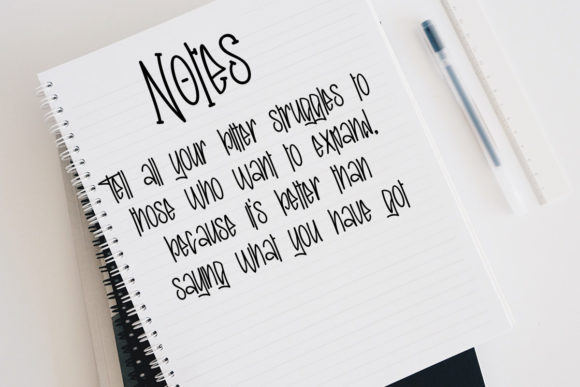 Notes
Tell all your bitter struggles to
those who want to expand.
because it's better than
saying what you have got